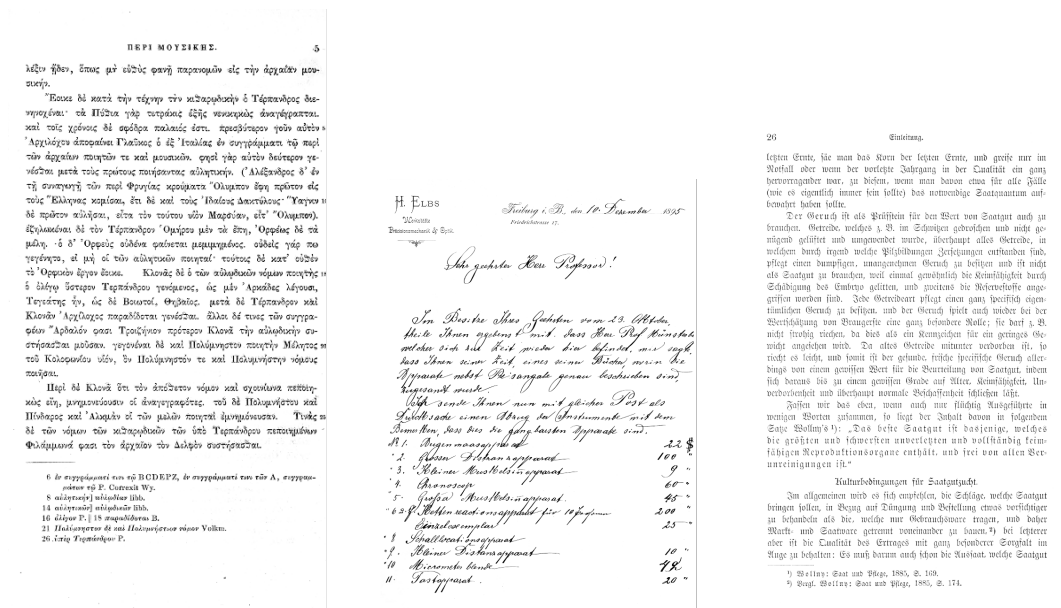 ΠΕΡΙ ΜΟΥΣΙΚΗΣ. 5
λέξιν ᾖδεν, ὅπως μὴ εὐθὺς φανῇ παρανομῶν εἰς τὴν ἀρχαίαν μου-
σικήν.
Ἔοικε δὲ κατὰ τὴν τέχνην τὴν κιθαρῳδικὴν ὁ Τέρπανδρος διε-
νηνοχέναι· τὰ Πύθια γὰρ τετράκις ἑξῆς νενικηκὼς ἀναγέγραπται.
καὶ τοῖς χρόνοις δὲ σφόδρα παλαιός ἐστι. πρεσβύτερον γοῦν αὐτὸν
Ἀρχιλόχου ἀποφαίνει Γλαῦκος ὁ ἐξ Ἰταλίας ἐν συγγράμματι τῷ περὶ
τῶν ἀρχαίων ποιητῶν τε καὶ μουσικῶν. φησὶ γὰρ αὐτὸν δεύτερον γε-
νέσθαι μετὰ τοὺς πρώτους ποιήσαντας αὐλητικήν. (Ἀλέξανδρος δ' ἐν
τῇ συναγωγῇ τῶν περὶ Φρυγίας κρούματα Ὄλυμπον ἔφη πρῶτον εἰς
τοὺς Ἕλληνας κομίσαι, ἔτι δὲ καὶ τοὺς Ἰδαίους Δακτύλους· Ὕαγνιν
δὲ πρῶτον αὐλῆσαι, εἶτα τὸν τούτου υἱὸν Μαρσύαν, εἶτ' Ὄλυμπον).
ἐζηλωκέναι δὲ τὸν Τέρπανδρον Ὁμήρου μὲν τὰ ἔπη, Ὀρφέως δὲ τὰ
μέλη. ὁ δ' Ὀρφεὺς οὐδένα φαίνεται μεμιμημένος. οὐδεὶς γάρ πω
γεγένητο, εἰ μὴ οἱ τῶν αὐλητικῶν ποιηταί· τούτοις δὲ κατ' οὐθὲν
τὸ Ὀρφικὸν ἔργον ἔοικε. Κλονᾶς δὲ ὁ τῶν αὐλῳδικῶν νόμων ποιητὴς
ὁ ὀλίγῳ ὕστερον Τερπάνδρου γενόμενος, ὡς μὲν Ἀρκάδες λέγουσι,
Τεγεάτης ἦν, ὡς δὲ Βοιωτοί, Θηβαῖος. μετὰ δὲ Τέρπανδρον καὶ
Κλονᾶν Ἀρχίλοχος παραδίδοται γενέσθαι. ἄλλοι δέ τινες τῶν συγγρα-
φέων Ἄρδαλόν φασι Τροιζήνιον πρότερον Κλονᾶ τὴν αὐλῳδικὴν συ-
στήσασθαι μοῦσαν. γεγονέναι δὲ καὶ Πολύμνηστον ποιητὴν Μέλητος
τοῦ Κολοφωνίου υἱόν, ὃν Πολύμνηστόν τε καὶ Πολυμνήστην νόμους
ποιῆσαι.
Περὶ δὲ Κλονᾶ ὅτι τὸν ἀπόθετον νόμον καὶ σχοινίωνα πεποιη-
κὼς εἴη, μνημονεύουσιν οἱ ἀναγεγραφότες. τοῦ δὲ Πολυμνήστου καὶ
Πίνδαρος καὶ Ἀλκμὰν οἱ τῶν μελῶν ποιηταὶ ἐμνημόνευσαν. Τινὰς
δὲ τῶν νόμων τῶν κιθαρῳδικῶν τῶν ὑπὸ Τερπάνδρου πεποιημένων
Φιλάμμωνά φασι τὸν ἀρχαῖον τὸν Δελφὸν συστήσασθαι.
6 ἐν συγγράμματί τινι τῷ BCDEPZ, ἐν συγγράμματί τινι τῶν A, συγγραμ-
μάσων τῷ P. Correxit Wy.
8 αὐλητικήν] αὐλῳδίαν libb.
14 αὐλητικῶν] αὐλῳδικῶν libb.
16 ὀλίγον P. || 18 παραδίδοται B.
21 Πολύμνηστον δὲ καὶ Πολυμνήστιον νόμον Volkm.
26 ὑπὲρ Τερπάνδρου P.
H. ELBS
Werkstätte
Präcisionsmechanik & Optik.
Freiburg i. B., den 10. Dezember 1895
Friedrichstrasse 17.
Sehr geehrter Herr Professor!
Im Besitze Ihres Geehrten vom 23. Oktober,
theile Ihnen ergebenst mit, dass Herr Prof Münsterb.
welcher sich zur Zeit wieder hier befindet, mir sagte
dass Ihnen seiner Zeit, eines seiner Bücher, worin die
Apparate nebst Preisangabe genau beschrieben sind,
zugesandt wurde.
Ich sende Ihnen nun mit gleicher Post als
Drucksache einen Abzug der Instrumente mit dem
Bemerken, dass dies die gangbarsten Apparate sind.
№ 1. Augenmaasapparat 22 $
" 2. Grosser Distanzapparat 100 "
" 3. Kleiner Muskelsinnapparat 9 "
" 4. Chronoscop 60 "
" 5. Großer Muskelsinnapparat. 45 "
Kettenreactionsapparat für 10 Personen 200 "
Einzelexemplar 25
" 8 Schalllocationsapparat
" 9. Kleiner Distanzapparat 10 "
" 10 Micrometerblende 42
11. Tastapparat. 20 "
26 Einleitung.
letzten Ernte, säe man das Korn der letzten Ernte, und greife nur im
Notfall oder wenn der vorletzte Jahrgang in der Qualität ein ganz
hervorragender war, zu diesem, wenn man davon etwa für alle Fälle
(wie es eigentlich immer sein sollte) das notwendige Saatquantum auf-
bewahrt haben sollte.
Der Geruch ist als Prüfstein für den Wert von Saatgut auch zu
brauchen. Getreide, welches z. B. im Schwitzen gedroschen und nicht ge-
nügend gelüftet und umgewendet wurde, überhaupt alles Getreide, in
welchem durch irgend welche Pilzbildungen Zersetzungen entstanden sind,
pflegt einen dumpfigen, unangenehmen Geruch zu besitzen und ist nicht
als Saatgut zu brauchen, weil einmal gewöhnlich die Keimfähigkeit durch
Schädigung des Embryo gelitten, und zweitens die Reservestoffe ange-
griffen worden sind. Jede Getreideart pflegt einen ganz spezifisch eigen-
tümlichen Geruch zu besitzen, und der Geruch spielt auch wieder bei der
Wertschätzung von Braugerste eine ganz besondere Rolle; sie darf z. B.
nicht strohig riechen, da dies als ein Kennzeichen für ein geringes Ge-
wicht angesehen wird. Da altes Getreide mitunter verdorben ist, so
riecht es leicht, und somit ist der gesunde, frische spezifische Geruch aller-
dings von einem gewissen Wert für die Beurteilung von Saatgut, indem
sich daraus bis zu einem gewissen Grade auf Alter, Keimfähigkeit, Un-
verdorbenheit und überhaupt normale Beschaffenheit schließen läßt.
Fassen wir das eben, wenn auch nur flüchtig Ausgeführte in
wenigen Worten zusammen, so liegt der Inhalt davon in folgendem
Satze Wollny's¹): „Das beste Saatgut ist dasjenige, welches
die größten und schwersten unverletzten und vollständig keim-
fähigen Reproduktionsorgane enthält, und frei von allen Ver-
unreinigungen ist."
Kulturbedingungen für Saatgutzucht.
Im allgemeinen wird es sich empfehlen, die Schläge, welche Saatgut
bringen sollen, in Bezug auf Düngung und Bestellung etwas vorsichtiger
zu behandeln als die, welche nur Gebrauchsware tragen, und daher
Markt- und Saatware getrennt voneinander zu bauen.²) bei letzterer
aber ist die Qualität des Ertrages mit ganz besonderer Sorgfalt im
Auge zu behalten: Es muß darum auch schon die Aussaat, welche Saatgut
¹) Wollny: Saat und Pflege, 1885, S. 169.
²) Vergl. Wollny: Saat und Pflege, 1885, S. 174.